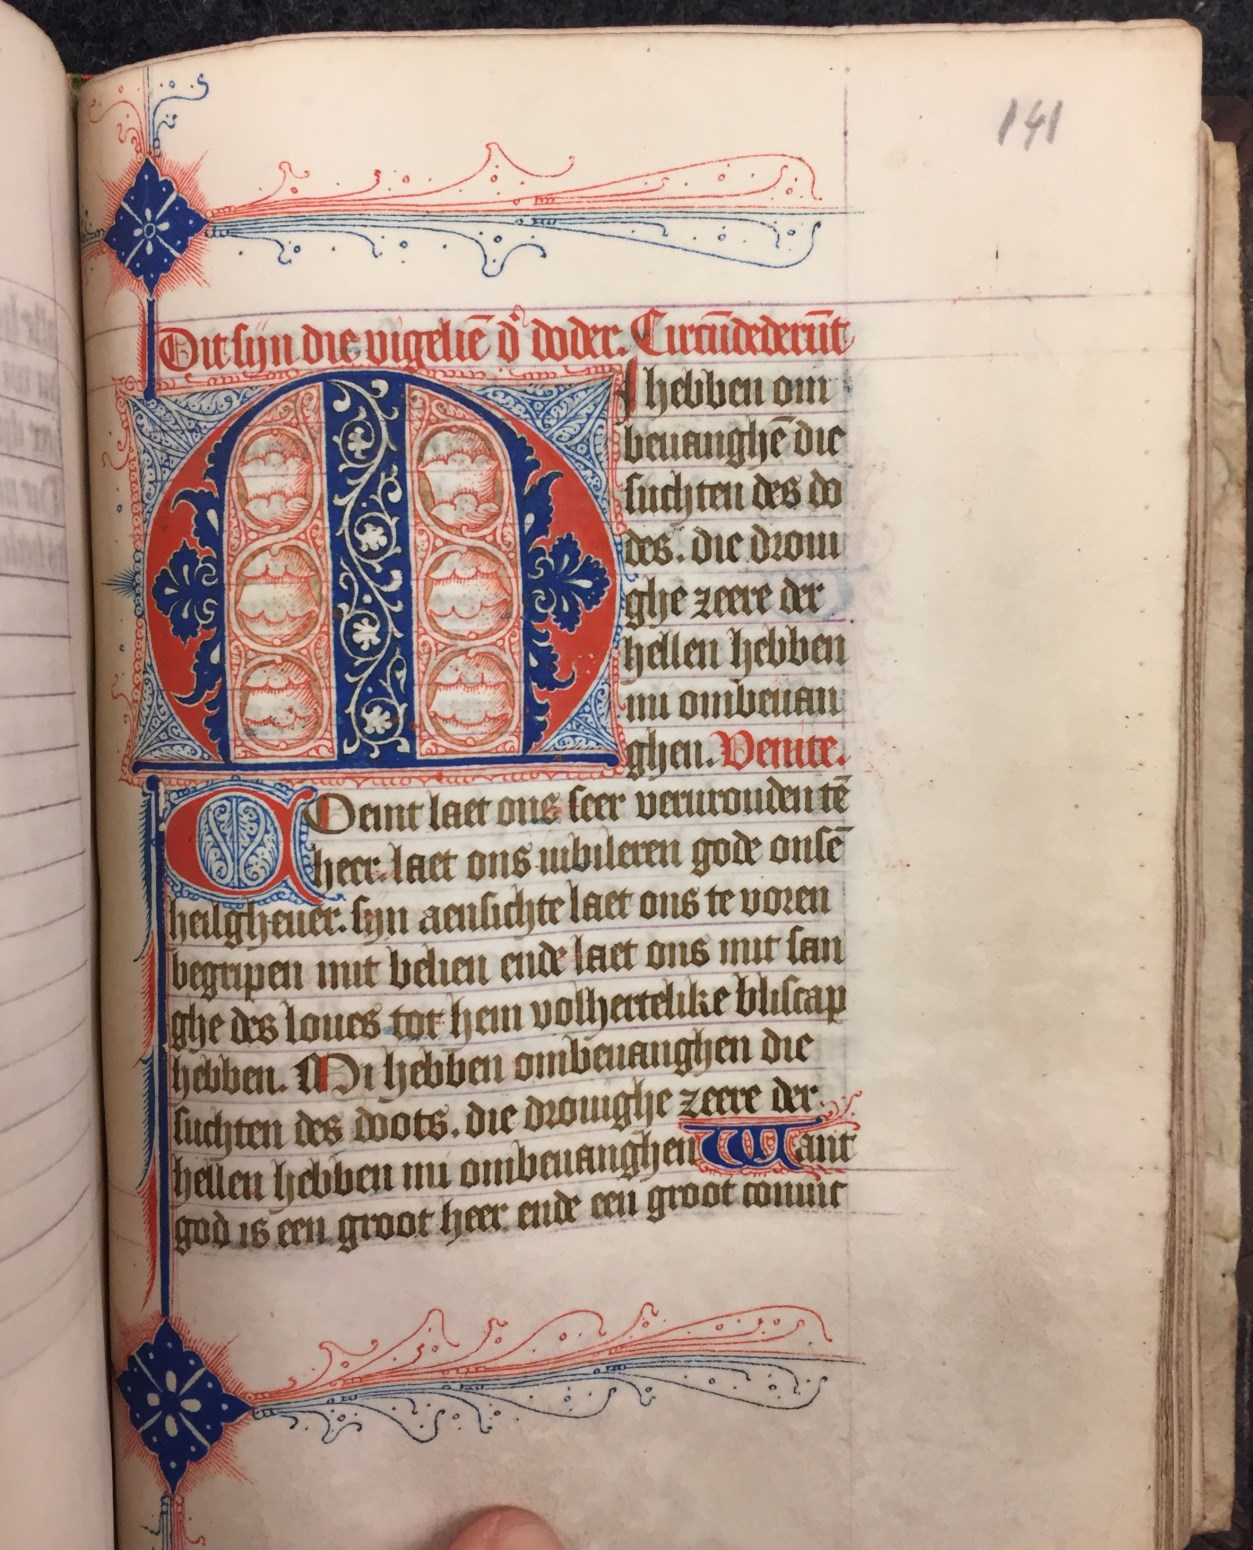 141
Dit sijn die vigeliē d' doder. Circūdederūt
MI hebben om
beuanghē die
suchten des do
des. die drou
ghe zeere der
hellen hebben
nu ombeuan
ghen. Venite.
COemt laet ons seer veruroudentē
heer. laet ons iubileren gode onsē
heilgheuer. sijn aensichte laet ons te voren
begripen mit belien ende laet ons mit san
ghe des loues tot hem volhertelike bliscap
hebben. Mi hebben ombeuanghen die
suchten des doots. die drouighe zeere der
hellen hebben nu ombeuanghen Want
god is een groot heer ende een groot coninc